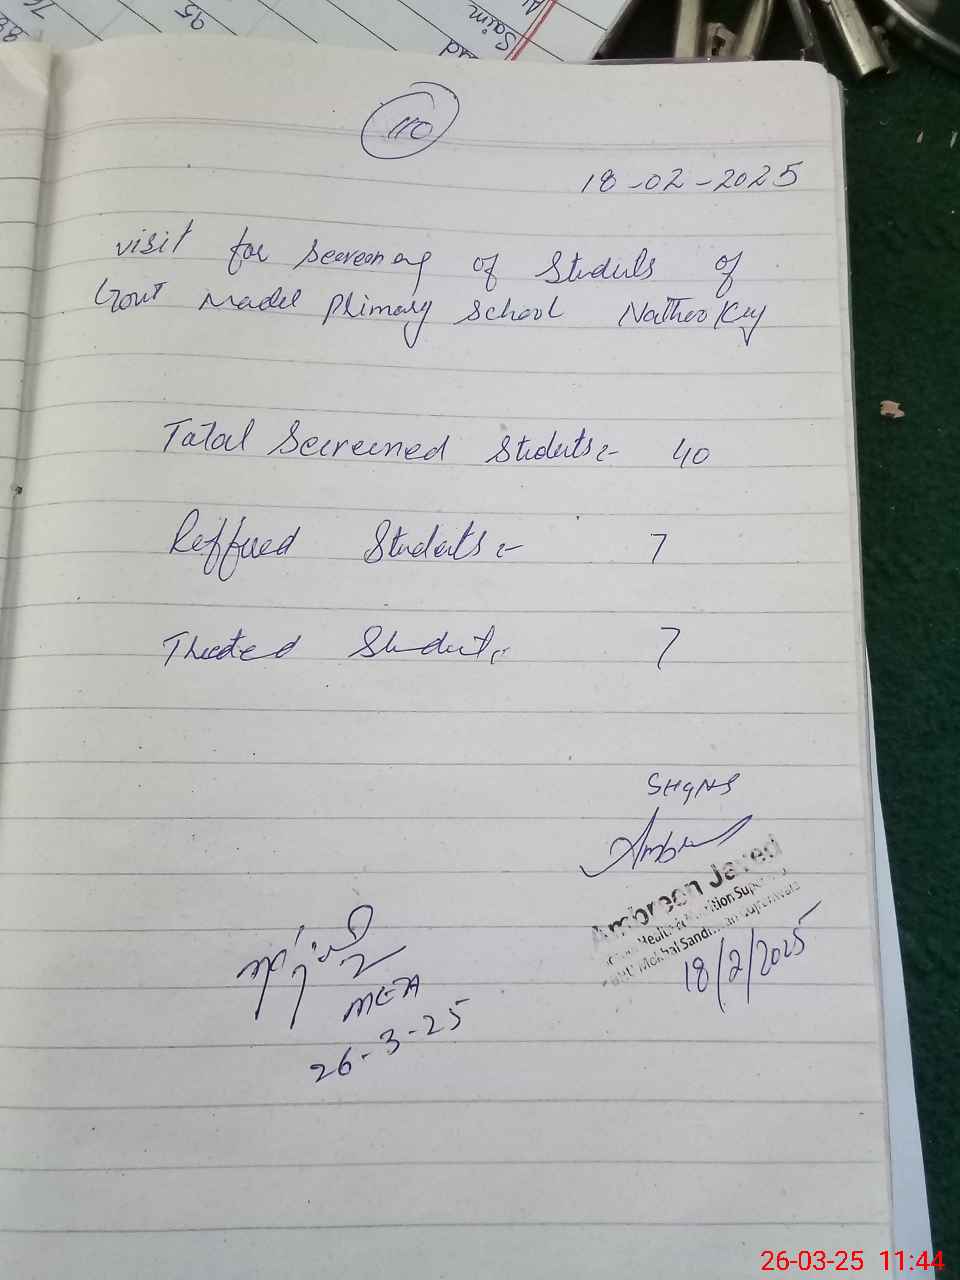 Saim
95
110
18-02-2025
visit for Secreening of Students of
Govt Model Primary School Nathoo Key
Total Secreened Students:- 40
Reffured Students:- 7
Threted Student:- 7
SH&NS
Ambreen Javed
Health & Nutrition
Mokhal Sandhwan Gujranwala
18/2/2025
MEA
26-3-25
26-03-25 11:44